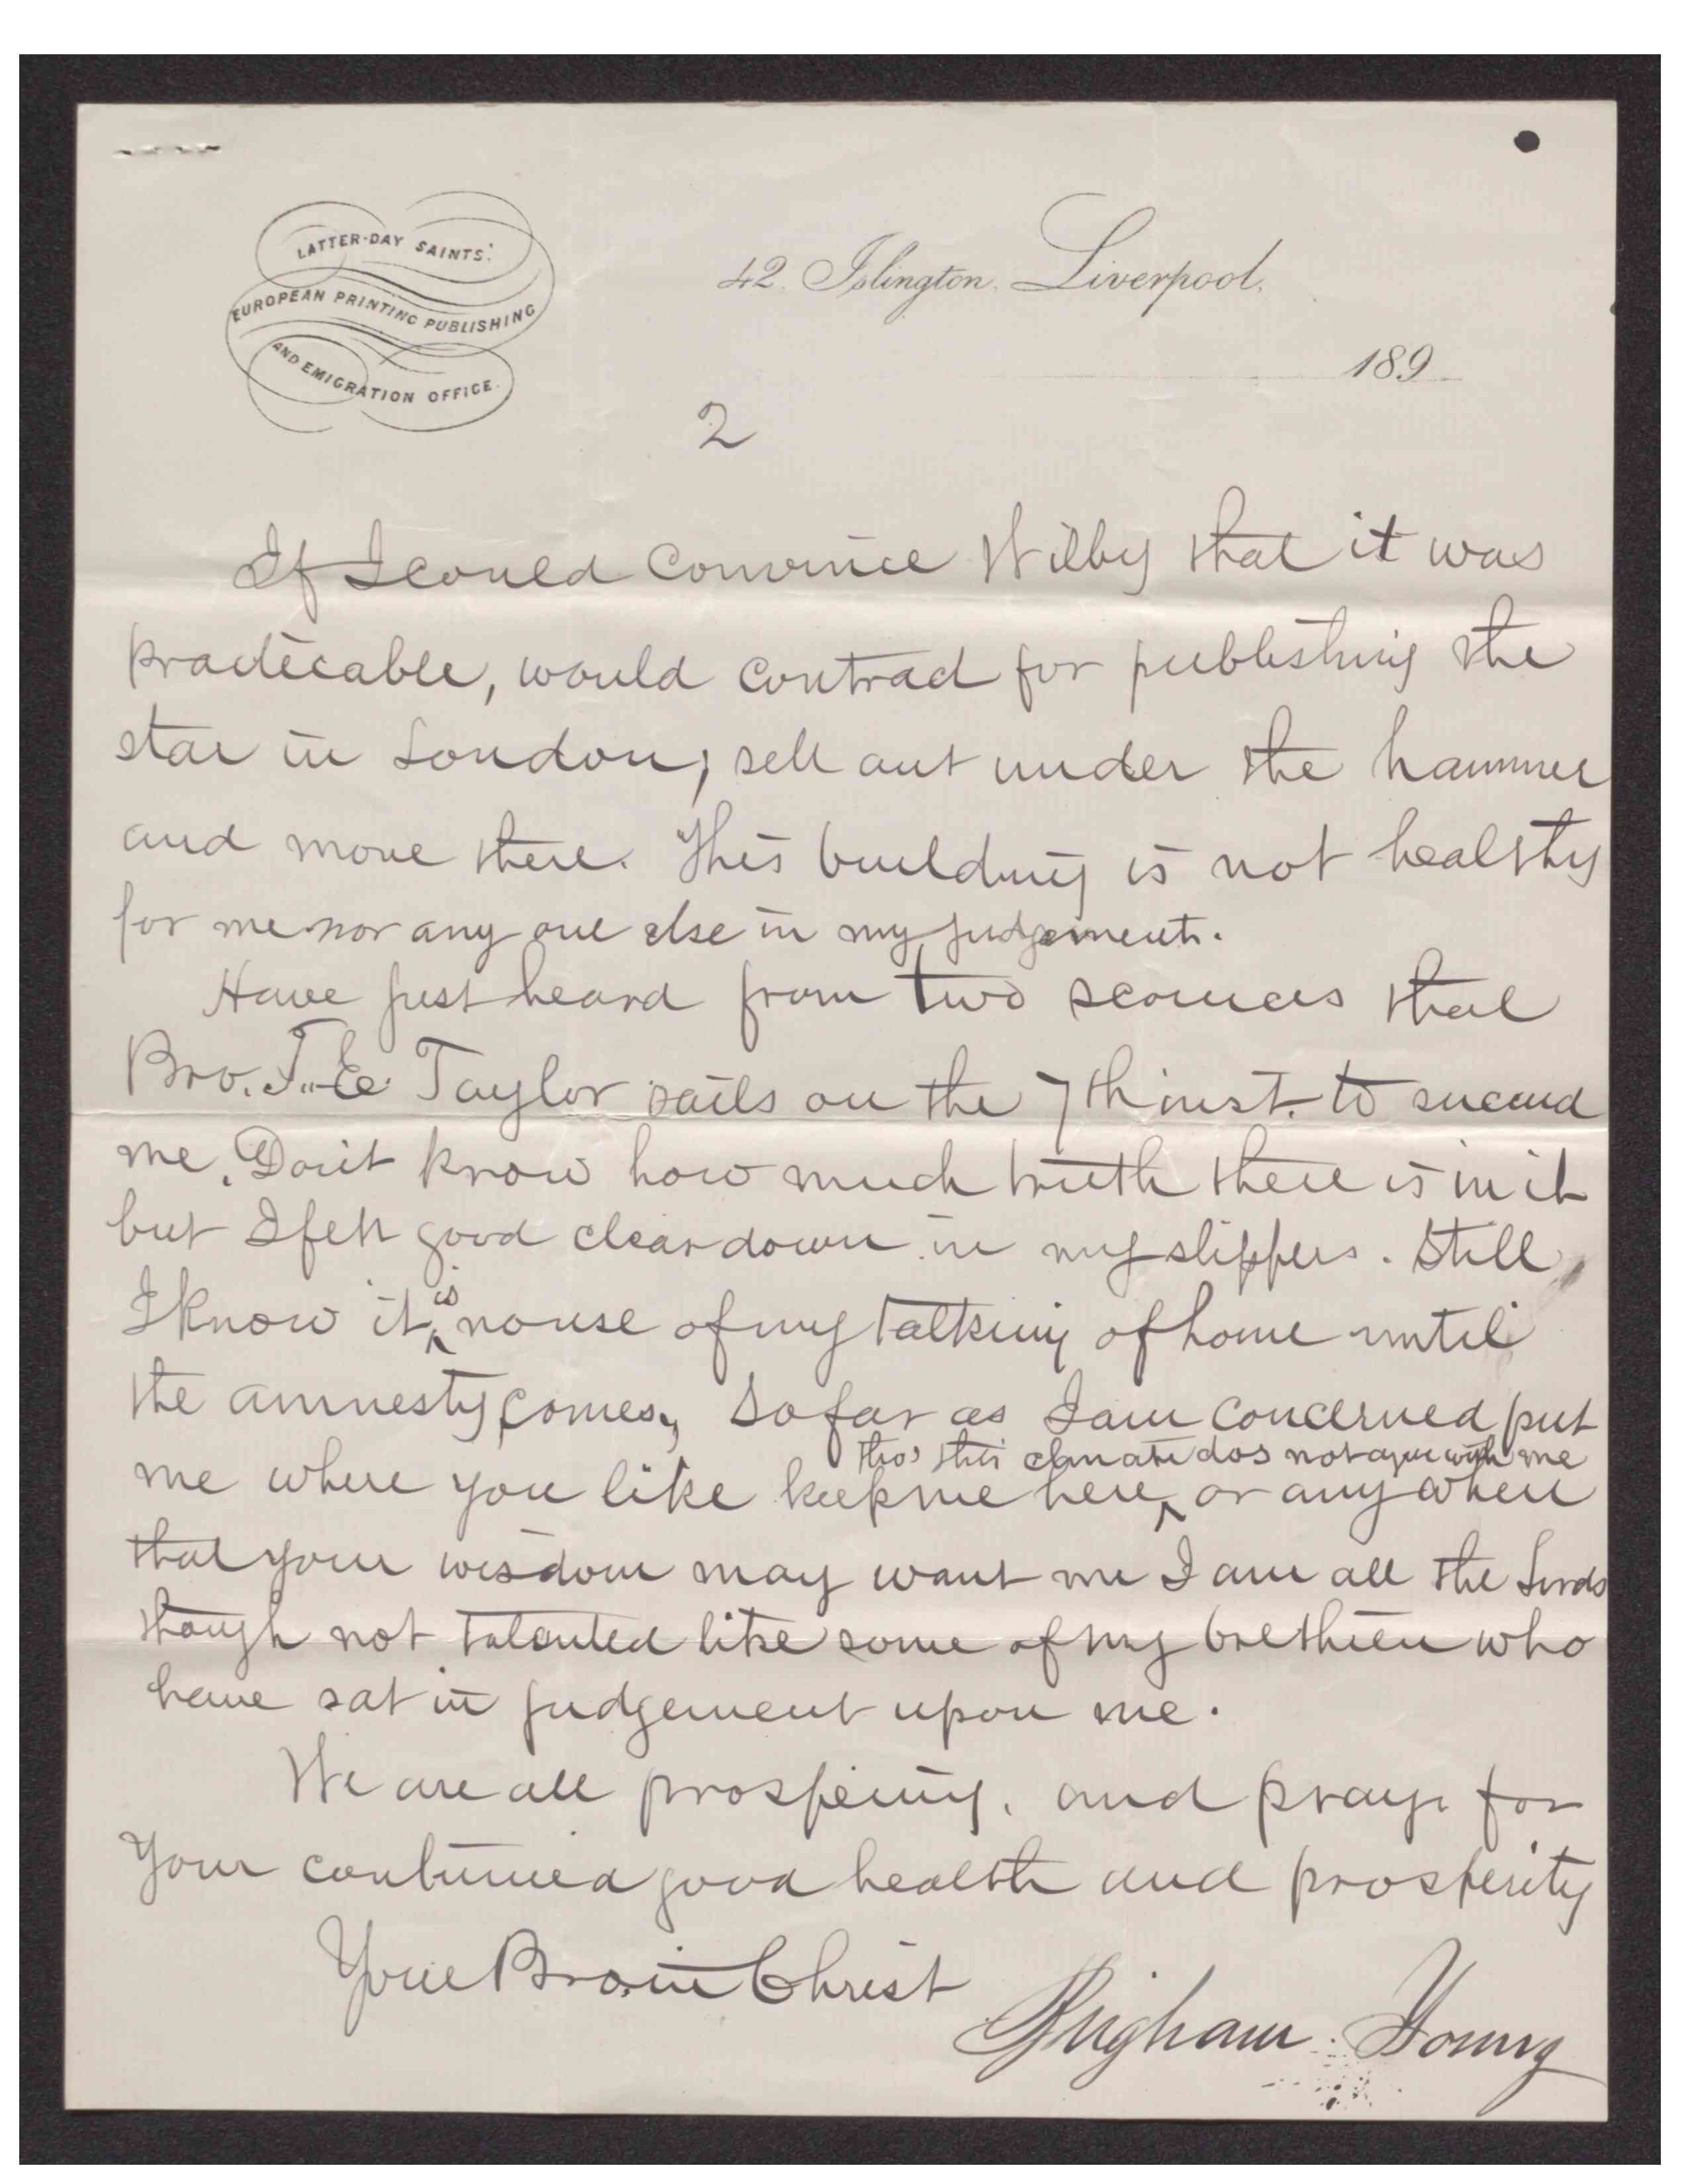 LATTER-DAY SAINTS'
EUROPEAN PRINTING PUBLISHING
AND EMIGRATION OFFICE.
42. Islington. Liverpool.
189
2
If I could convince Wilby that it was
practicable, would contract for publishing the
star in London, sell out under the hammer
and move there. This building is not healthy
for me nor any one else in my judgement.
Have just heard from two sources that
Bro. T. E. Taylor sails on the 7th inst. to succeed
me. Don't know how much truth there is in it
but I felt good clear down in my slippers. Still
I know it is no use of my talking of home until
the amnesty comes, So far as I am concerned put
tho' this climate dos not agree with me
me where you like keep me here, or any where
that your wisdom may want me I am all the Lords
though not talented like some of my brethren who
have sat in judgement upon me.
We are all prospering, and pray for
Your continued good health and prosperity
Your Bro. in Christ
Brigham Young